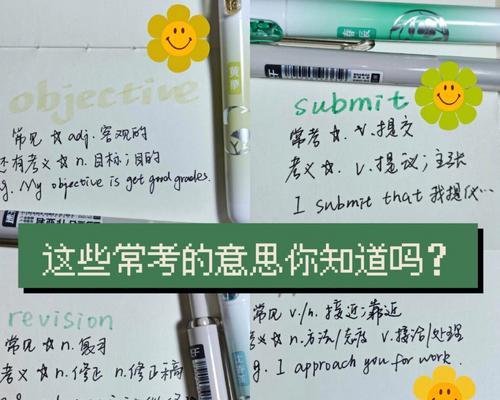 objective
常见 ☆ adj. 客观的
还有考义 ☆ n. 目标;目的
g. My objective is get good grades.
黄華
春辰
submit
常考 ☆. v. 提交
考义 ☆. v. 提议;主张
I submit that 我提议…
这些常考的意思你知道吗?
revision
常见 ☆ n. 复习
考义 ☆ n. 修正 n. 修正稿
常见 v./n. 接近;靠近
考义 ☆ n. 方法/态度 v. 接洽/处理
g. I approach you for work.